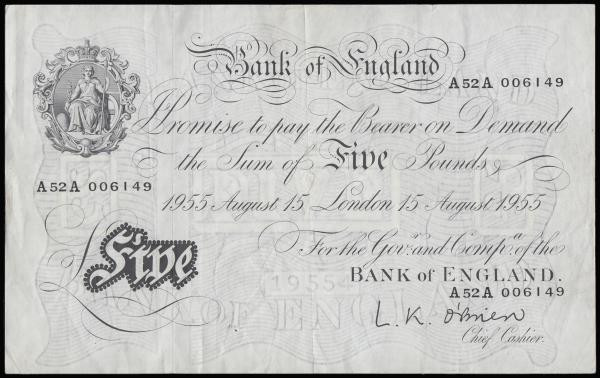 Bank of England
A52A 006149
I Promise to pay the Bearer on Demand
the Sum of Five Pounds
A52A 006149
1955 August 15 London 15 August 1955
For the Gov.r and Comp.a of the
£Five
BANK of ENGLAND.
A52A 006149
1955
OF ENGLA
L.K. O'Brien
Chief Cashier.